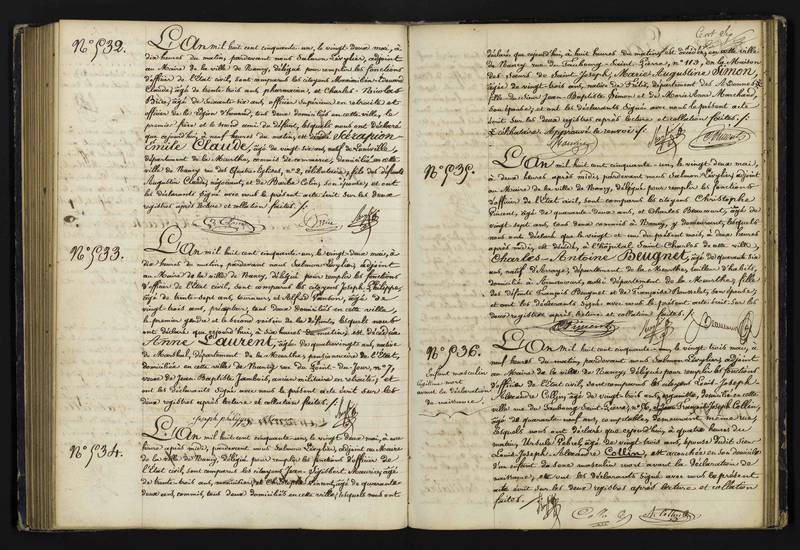 N° 532.
L'An mil huit cent cinquante-un, le vingt deux mai, à
dix heures du matin, pardevant nous Salmon Lévylier, adjoint
au Maire de la ville de Nancy, délégué pour remplir les fonctions
d'officier de l'État civil, sont comparus les citoyens Maximilien Édmond
Claude, âgé de trente trois ans, pharmacien, et Charles-Nicolas
Brice, âgé de soixante six ans, officier supérieur en retraite et
officier de la Légion d'honneur, tous deux domiciliés en cette ville, le
premier frère et le second ami du défunt, lesquels nous ont déclaré
que cejourd'hui, à neuf heures du matin, est décédé Sérapion
Emile Claude, âgé de vingt six ans, natif de
département de la Meurthe, commis de commerce, domicilié en cette
ville de Nancy rue des Quatre Eglises, n° 2, célibataire, fils des défunts
Augustin Claude, négociant, et de Barbe Colin son épouse, et ont
les déclarants signé avec nous le présent acte écrit sur les deux
registres après lecture et collation faites.
N° 533.
L'An mil huit cent cinquante-un, le vingt deux mai, à
dix heures du matin, pardevant nous Salmon Lévylier, adjoint
au Maire de la ville de Nancy, délégué pour remplir les fonctions
d'officier de l'État civil, sont comparus les citoyens Joseph Philippe,
âgé de trente-sept ans, tourneur, et Alfred âgé de
vingt trois ans, précepteur, tous deux domiciliés en cette ville
le premier gendre et le second voisin de la défunte, lesquels nous
ont déclaré que cejourd'hui, à six heures du matin, est décédée
Anne Laurent, âgée de quatrevingts ans, native
de département de la Meurthe, pensionnaire de l'État,
domiciliée en cette ville de Nancy rue du Point-du-jour, n° 7,
veuve de Jean Baptiste ancien militaire en retraite, et
ont les déclarants signé avec nous le présent acte écrit sur les
deux registres après lecture et collation faites.
Joseph philippe
N° 534.
L'An mil huit cent cinquante-un, le vingt deux mai, à onze
heures après midi, pardevant nous Salmon Lévylier, adjoint au Maire
de la ville de Nancy, délégué pour remplir les fonctions d'officier de
l'État civil, sont comparus les citoyens Jean-Sigisbert Maurice, âgé
de trente trois ans, et Christophe Vincent, âgé de quarante
deux ans, commis, tous deux domiciliés en cette ville, lesquels nous ont
déclaré que cejourd'hui, à huit heures du matin est décédée, en cette ville
de Nancy rue du Faubourg Saint-Pierre, n° 113, en la Maison
des Soeurs de Saint Joseph, Marie Augustine Simon,
âgée de vingt trois ans, native de département des Ardennes
fille du sieur Jean Baptiste Simon et de Marie Anne Marchand,
son épouse, et ont les déclarants signé avec nous le présent acte
écrit sur les deux registres après lecture et collation faites.
célibataire. Approuvé le renvoi
Vincent
N° 535.
L'An mil huit cent cinquante-un, le vingt deux mai,
à deux heures après midi, pardevant nous Salmon Lévylier, adjoint
au Maire de la ville de Nancy, délégué pour remplir les fonctions
d'officier de l'État civil, sont comparus les citoyens Christophe
Vincent, âgé de quarante deux ans, et Charles Beaumont, âgé de
vingt sept ans, tous deux commis à Nancy, y demeurant, lesquels
nous ont déclaré que le vingt et un du présent mois, à deux heures
après midi, est décédé, à l'hôpital Saint Charles de cette ville,
Charles Antoine Beugnet, âgé de quarante six
ans, natif d' département de la Meurthe, tailleur d'habits,
domicilié à même département de la Meurthe, fils
des défunts François Beugnet et de Françoise son épouse,
et ont les déclarants signé avec nous le présent acte écrit sur les
deux registres après lecture et collation faites.
Vincent
N° 536.
Enfant masculin
légitime mort
avant la déclaration
de naissance.
L'An mil huit cent cinquante-un, le vingt trois mai, à
neuf heures du matin, pardevant nous Salmon Lévylier, adjoint
au Maire de la ville de Nancy, délégué pour remplir les fonctions
d'officier de l'État civil, sont comparus les citoyens Louis Joseph
Alexandre Collin, âgé de vingt trois ans, domicilié en cette
ville rue du Faubourg Saint Pierre, n° et Jean François Joseph Collin,
âgé de quarante ans, comptable, demeurant même rue,
lesquels nous ont déclaré que cejourd'hui, à quatre heures du
matin, Ursule âgée de vingt trois ans, épouse dudit sieur
Louis Joseph Alexandre Collin, est accouchée en son domicile
d'un enfant du sexe masculin mort avant la déclaration de
naissance, et ont les déclarants signé avec nous le présent
acte écrit sur les deux registres après lecture et collation
faites.